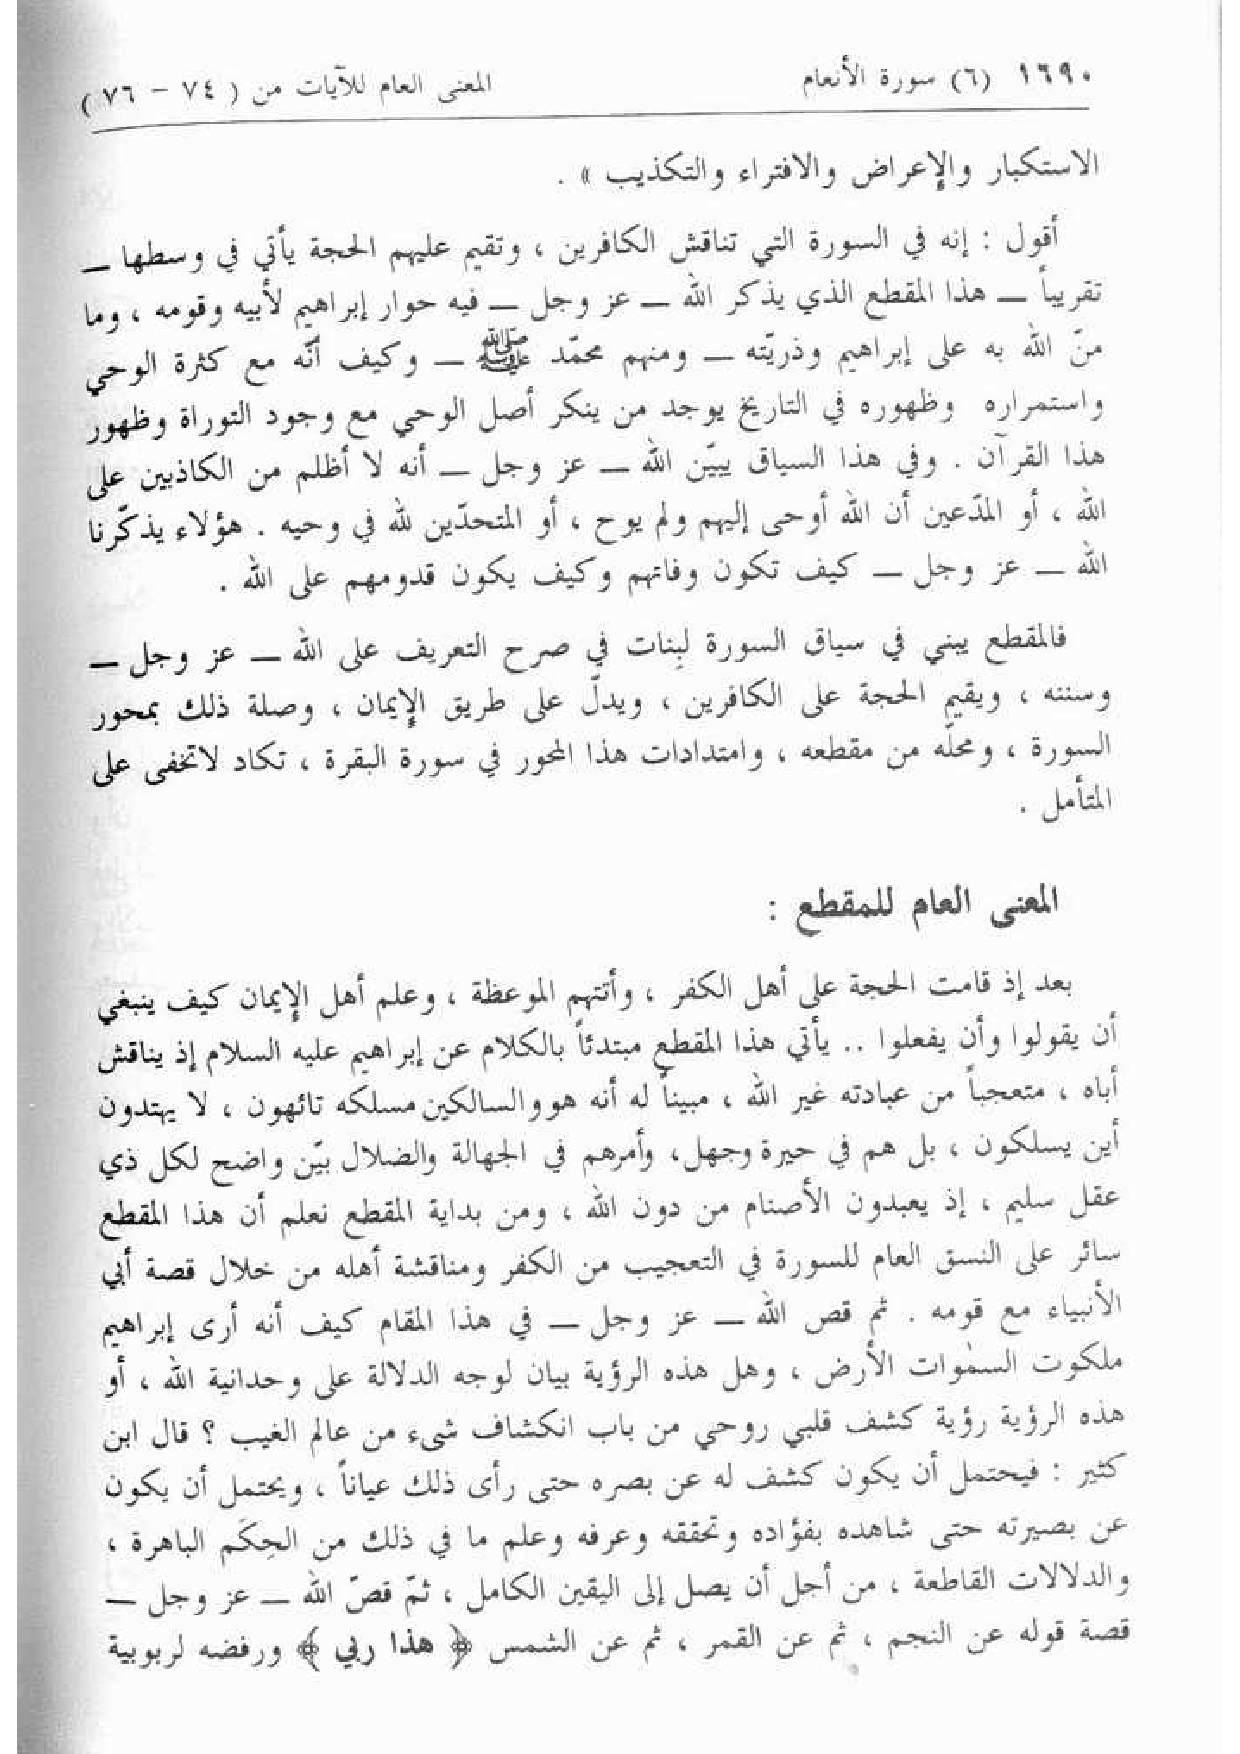 ١٦٩٠ (٦) سورة الأنعام المعنى العام للآيات من ( ٧٤ - ٧٦ )
الاستكبار والإعراض والافتراء والتكذيب » .
أقول : إنه في السورة التي تناقش الكافرين ، وتقيم عليهم الحجة يأتي في وسطها ــ
تقريباً ــ هذا المقطع الذي يذكر الله ــ عز وجل ــ فيه حوار إبراهيم لأبيه وقومه ، وما
منّ الله به على إبراهيم وذريّته ــ ومنهم محمّد ﷺ ــ وكيف أنّه مع كثرة الوحي
واستمراره وظهوره في التاريخ يوجد من ينكر أصل الوحي مع وجود التوراة وظهور
هذا القرآن . وفي هذا السياق يبيّن الله ــ عز وجل ــ أنه لا أظلم من الكاذبين على
الله ، أو المدّعين أن الله أوحى إليهم ولم يوح ، أو المتحدّين لله في وحيه . هؤلاء يذكّرنا
الله ــ عز وجل ــ كيف تكون وفاتهم وكيف يكون قدومهم على الله .
فالمقطع يبني في سياق السورة لبِنات في صرح التعريف على الله ــ عز وجل ــ
وسننه ، ويقيم الحجة على الكافرين ، ويدلّ على طريق الإيمان ، وصلة ذلك بمحور
السورة ، ومحلّه من مقطعه ، وامتدادات هذا المحور في سورة البقرة ، تكاد لاتخفى على
المتأمل .
المعنى العام للمقطع :
بعد إذ قامت الحجة على أهل الكفر ، وأتتهم الموعظة ، وعلم أهل الإيمان كيف ينبغي
أن يقولوا وأن يفعلوا .. يأتي هذا المقطع مبتدئاً بالكلام عن إبراهيم عليه السلام إذ يناقش
أباه ، متعجباً من عبادته غير الله ، مبيناً له أنه هو والسالكين مسلكه تائهون ، لا يهتدون
أين يسلكون ، بل هم في حيرة وجهل، وأمرهم في الجهالة والضلال بيّن واضح لكل ذي
عقل سليم ، إذ يعبدون الأصنام من دون الله ، ومن بداية المقطع نعلم أن هذا المقطع
سائر على النسق العام للسورة في التعجيب من الكفر ومناقشة أهله من خلال قصة أبي
الأنبياء مع قومه . ثم قص الله ــ عز وجل ــ في هذا المقام كيف أنه أرى إبراهيم
ملكوت السمٰوات الأرض ، وهل هذه الرؤية بيان لوجه الدلالة على وحدانية الله ، أو
هذه الرؤية رؤية كشف قلبي روحي من باب انكشاف شىء من عالم الغيب ؟ قال ابن
كثير : فيحتمل أن يكون كشف له عن بصره حتى رأى ذلك عياناً ، ويحتمل أن يكون
عن بصيرته حتى شاهده بفؤاده وتحققه وعرفه وعلم ما في ذلك من الحِكَم الباهرة ،
والدلالات القاطعة ، من أجل أن يصل إلى اليقين الكامل ، ثمّ قصّ الله ــ عز وجل ــ
قصة قوله عن النجم ، ثم عن القمر ، ثم عن الشمس ﴿ هذا ربي ﴾ ورفضه لربوبية